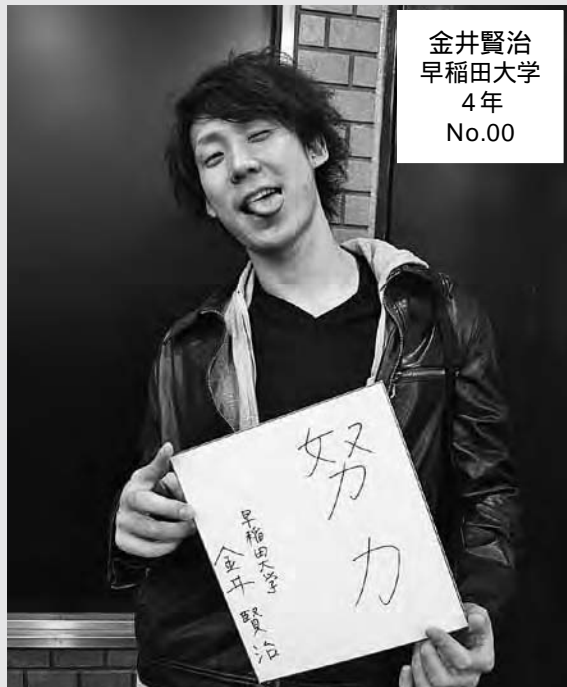 金井賢治
早稲田大学
4年
No.00
努力
早稲田大学
金井賢治